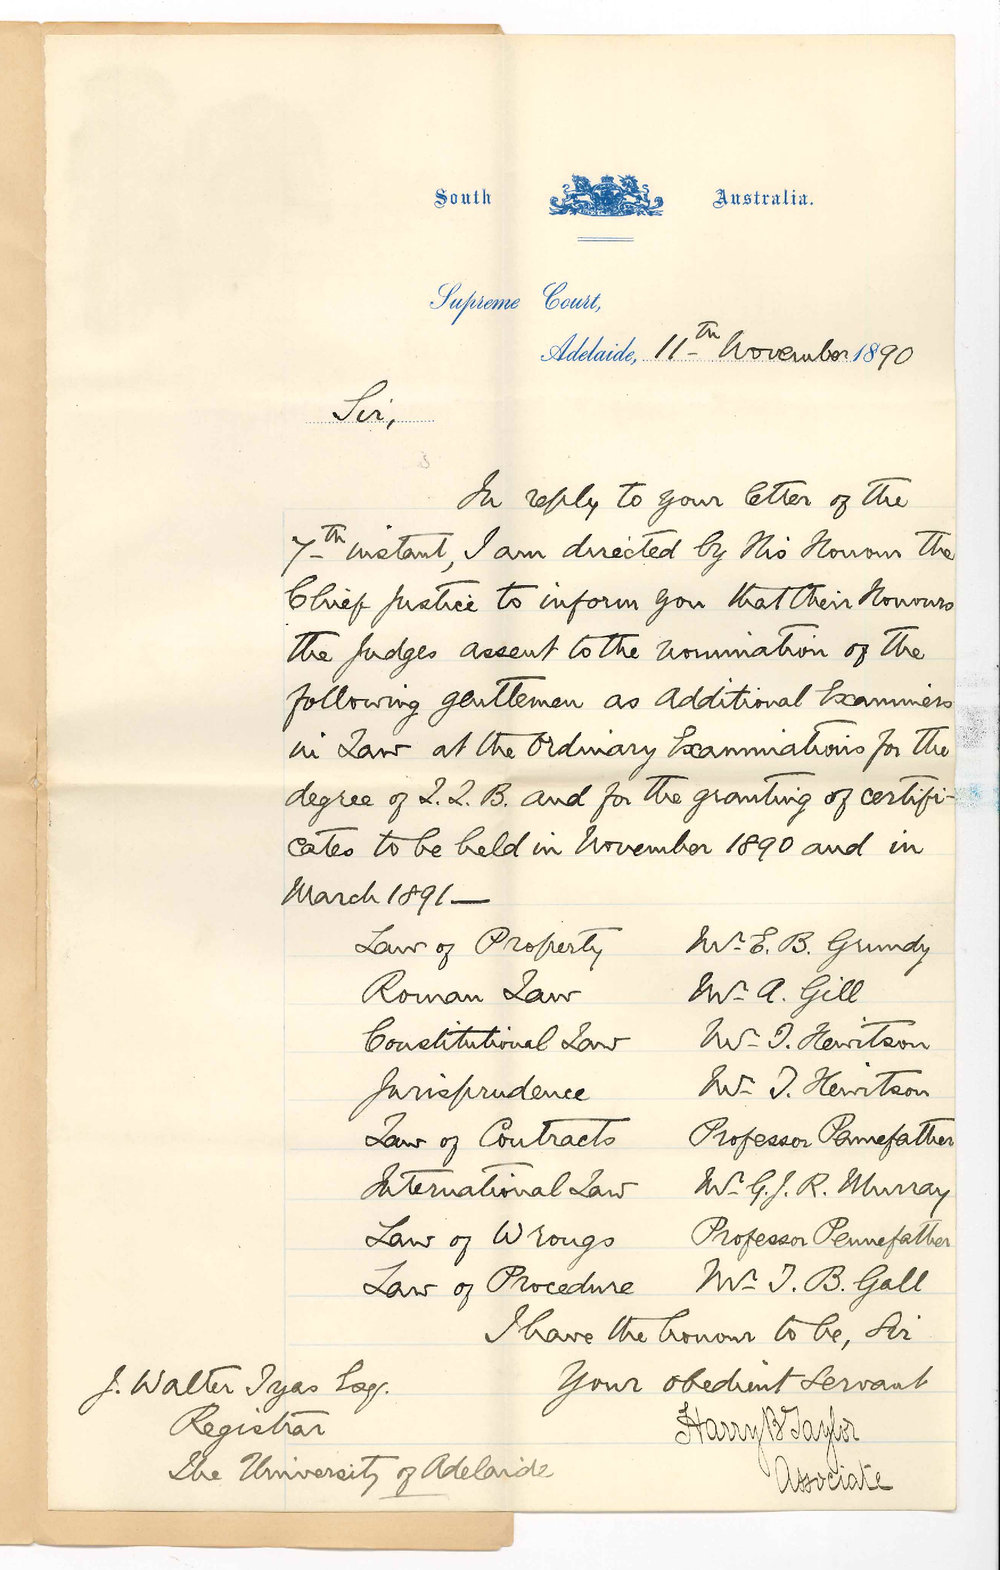 South Australia.
Supreme Court,
Adelaide, 11th November 1890
Sir,
In reply to your letter of the
7th instant, I am directed by His Honour the
Chief Justice to inform you that their Honours
the Judges assent to the nomination of the
following gentlemen as additional Examiners
in Law at the Ordinary Examinations for the
degree of L.L.B. and for the granting of certifi-
cates to be held in November 1890 and in
March 1891—
Law of Property Mr. E. B. Grundy
Roman Law Mr. A. Gill
Constitutional Law Mr. T. Hewitson
Jurisprudence Mr. T. Hewitson
Law of Contracts Professor Pennefather
International Law Mr. G. J. R. Murray
Law of Wrongs Professor Pennefather
Law of Procedure Mr. T. B. Gall
I have the honour to be, Sir
Your obedient servant
Harry B Taylor
Associate
J. Walter Tyas Esq.
Registrar
The University of Adelaide